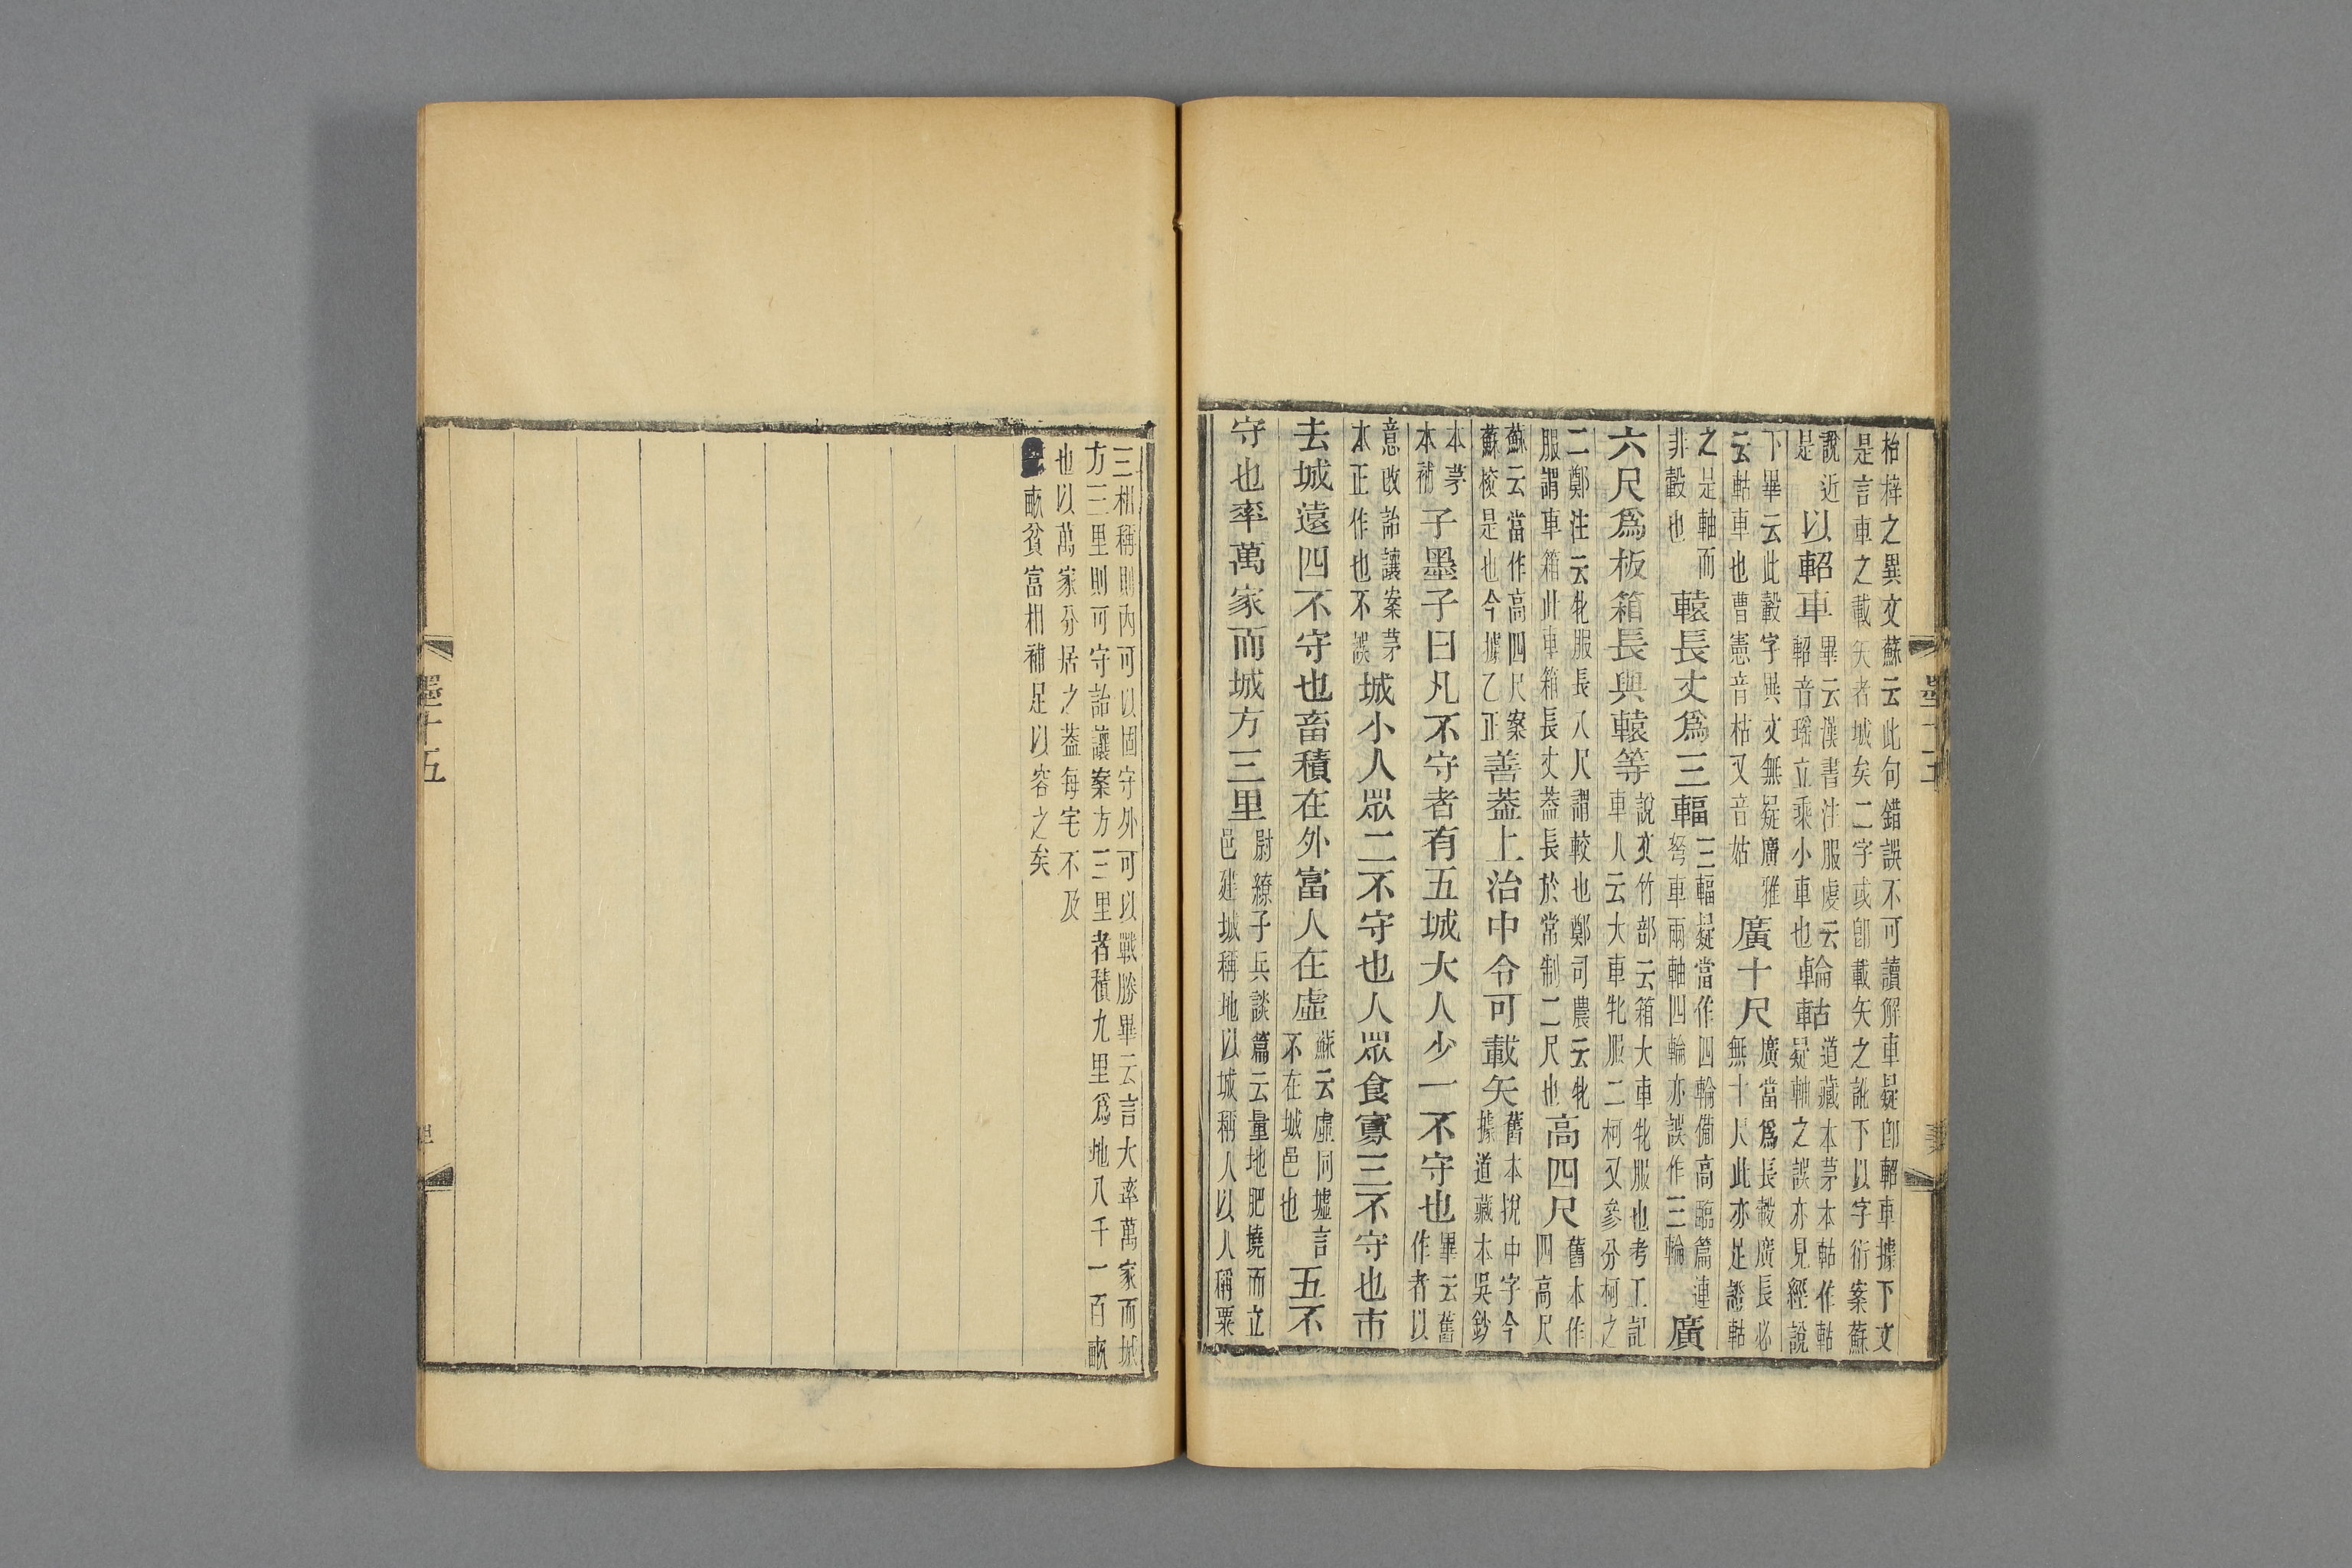 枱梓之異文蘇云此句錯誤不可讀解車疑卽軺車據下文
是言車之載矢者城矣二字或卽載矢之訛下以字衍案蘇
說近是以軺車畢云漢書注服虔云軺音瑤立乘小車也輪軲道藏本茅本軲作䡩疑軸之誤亦見經說
下畢云此轂字異文無疑廣雅云軲車也曹憲音枯又音姑廣十尺廣當爲長轂廣長必無十尺此亦足證軲
之是軸而非轂也轅長丈爲三輻三輻疑當作四輪備高臨篇連弩車兩軸四輪亦誤作三輪廣
六尺爲板箱長與轅等說文竹部云箱大車牝服也考工記車人云大車牝服二柯又參分柯之
二鄭注云牝服長八尺謂較也鄭司農云牝服謂車箱此車箱長丈蓋長於常制二尺也高四尺舊本作四高尺
蘇云當作高四尺案蘇校是也今據乙正善蓋上治中令可載矢舊本捝中字今據道藏本吳鈔
本茅本補子墨子曰凡不守者有五城大人少一不守也畢云舊作者以
意改詒讓案茅本正作也不誤城小人眾二不守也人眾食寡三不守也市
去城遠四不守也畜積在外富人在虛蘇云虛同墟言不在城邑也五不
守也率萬家而城方三里尉繚子兵談篇云量地肥墝而立邑建城稱地以城稱人以人稱粟
墨十五
三相稱則內可以固守外可以戰勝畢云言大率萬家而城
方三里則可守詒讓案方三里者積九里爲地八千一百畝
也以萬家分居之蓋每宅不及
畝貧富相補足以容之矣
墨十五